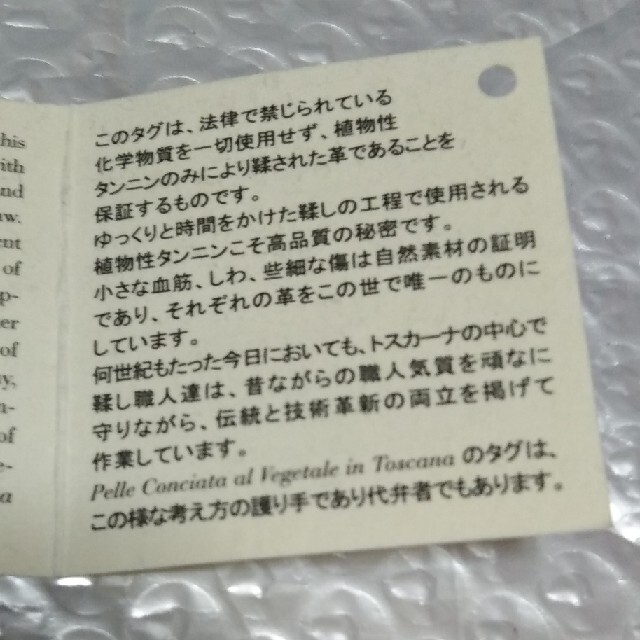 his
ith
nd
w.
ent
of
p-
er
of
y,
a-
of
e-
a
このタグは、法律で禁じられている
化学物質を一切使用せず、植物性
タンニンのみにより鞣された革であることを
保証するものです。
ゆっくりと時間をかけた鞣しの工程で使用される
植物性タンニンこそ高品質の秘密です。
小さな血筋、しわ、些細な傷は自然素材の証明
であり、それぞれの革をこの世で唯一のものに
しています。
何世紀もたった今日においても、トスカーナの中心で
鞣し職人達は、昔ながらの職人気質を頑なに
守りながら、伝統と技術革新の両立を掲げて
作業しています。
Pelle Conciata al Vegetale in Toscana のタグは、
この様な考え方の護り手であり代弁者でもあります。